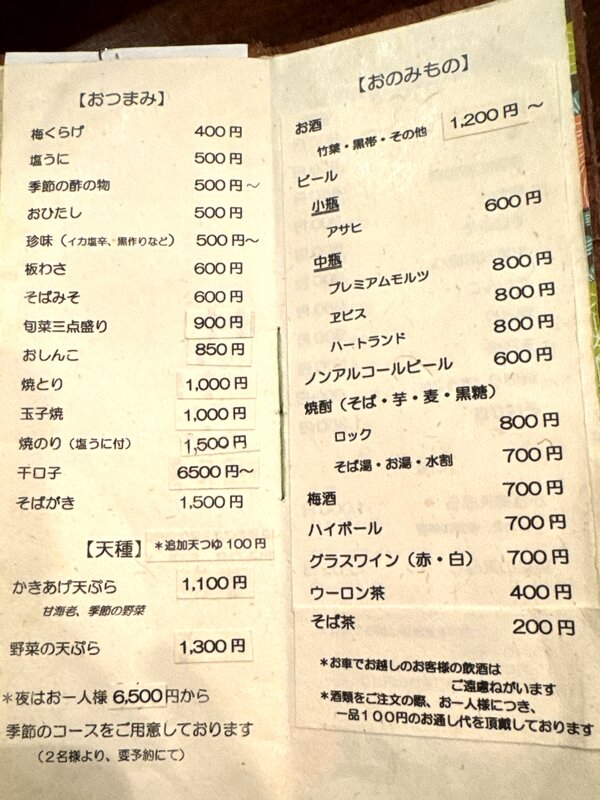 【おつまみ】
梅くらげ 400円
塩うに 500円
季節の酢の物 500円～
おひたし 500円
珍味（イカ塩辛、黒作りなど） 500円～
板わさ 600円
そばみそ 600円
旬菜三点盛り 900円
おしんこ 850円
焼とり 1,000円
玉子焼 1,000円
焼のり（塩うに付） 1,500円
干口子 6500円～
そばがき 1,500円
【天種】 ＊追加天つゆ100円
かきあげ天ぷら 1,100円
甘海老、季節の野菜
野菜の天ぷら 1,300円
＊夜はお一人様6,500円から
季節のコースをご用意しております
（２名様より、要予約にて）
【おのみもの】
お酒 1,200円～
竹葉・黒帯・その他
ビール
小瓶 600円
アサヒ
中瓶
プレミアムモルツ 800円
ヱビス 800円
ハートランド 800円
ノンアルコールビール 600円
焼酎（そば・芋・麦・黒糖）
ロック 800円
そば湯・お湯・水割 700円
梅酒 700円
ハイボール 700円
グラスワイン（赤・白） 700円
ウーロン茶 400円
そば茶 200円
＊お車でお越しのお客様の飲酒は
ご遠慮ねがいます
＊酒類をご注文の際、お一人様につき、
一品１００円のお通し代を頂戴しております